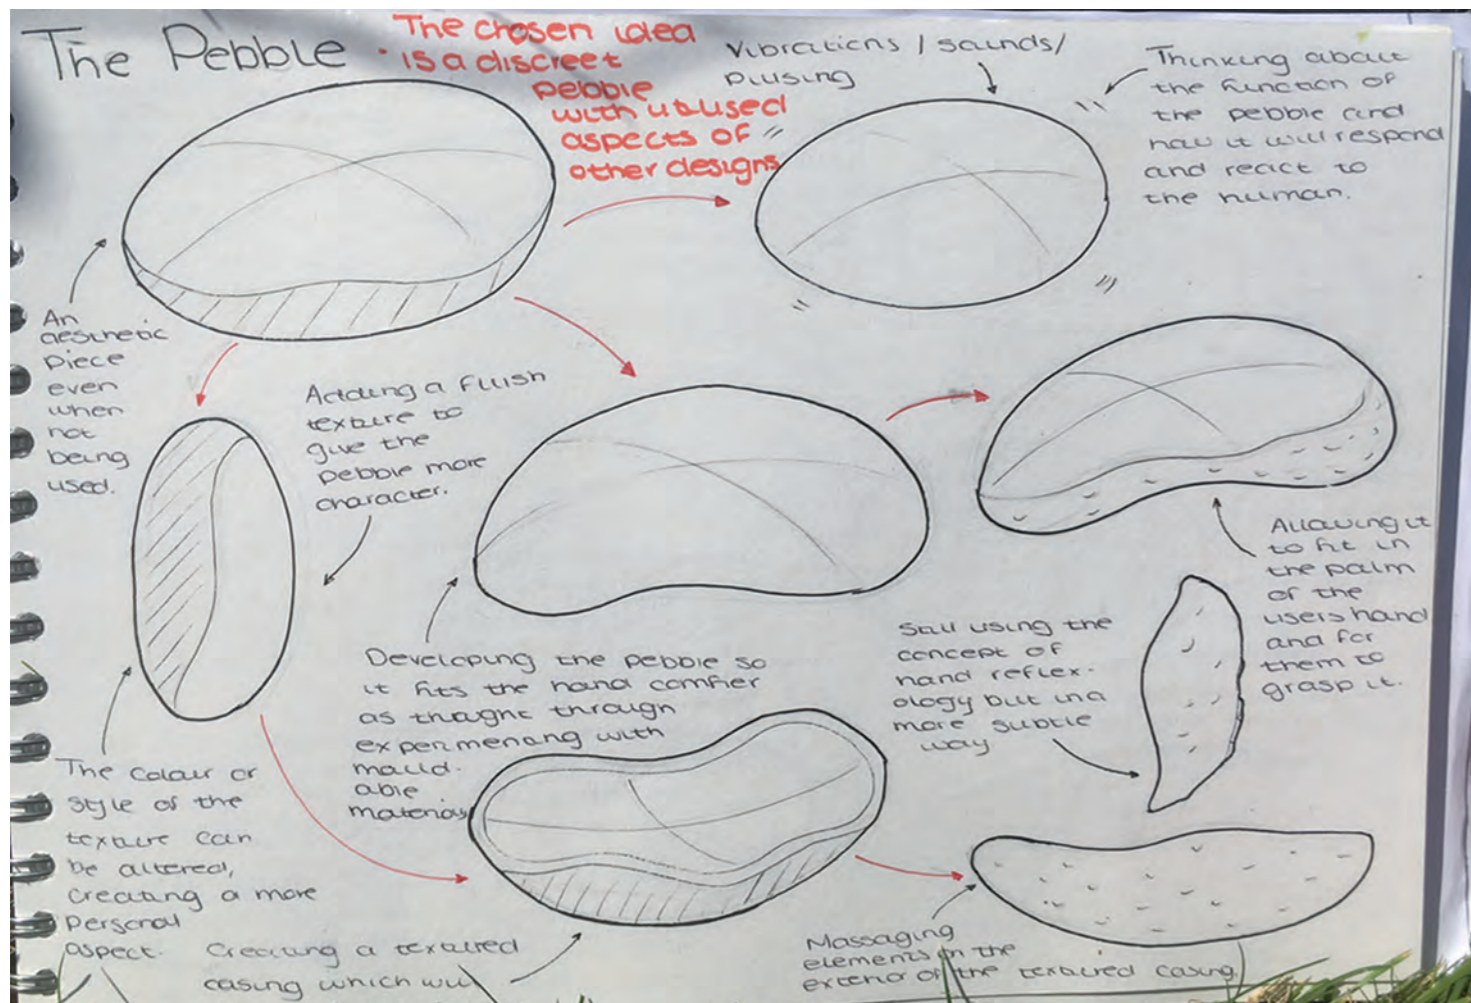 The Pebble
· The chosen idea
is a discreet
pebble
with ubused
aspects of
other designs
Vibrations / sounds/
pulsing
Thinking about
the function of
the pebble and
how it will respond
and react to
the human.
An
aesthetic
piece
even
when
not
being
used.
Adding a flush
texture to
give the
pebble more
character.
Allowing it
to fit in
the palm
of the
users hand
and for
them to
grasp it.
Still using the
concept of
hand reflex-
ology but in a
more subtle
way
Developing the pebble so
it fits the hand comfier
as thought through
experimenting with
mould-
able
materials
The colour or
style of the
texture can
be altered,
creating a more
personal
aspect.
Creating a textured
casing which will
Massaging
elements in the
exterior of the textured casing.